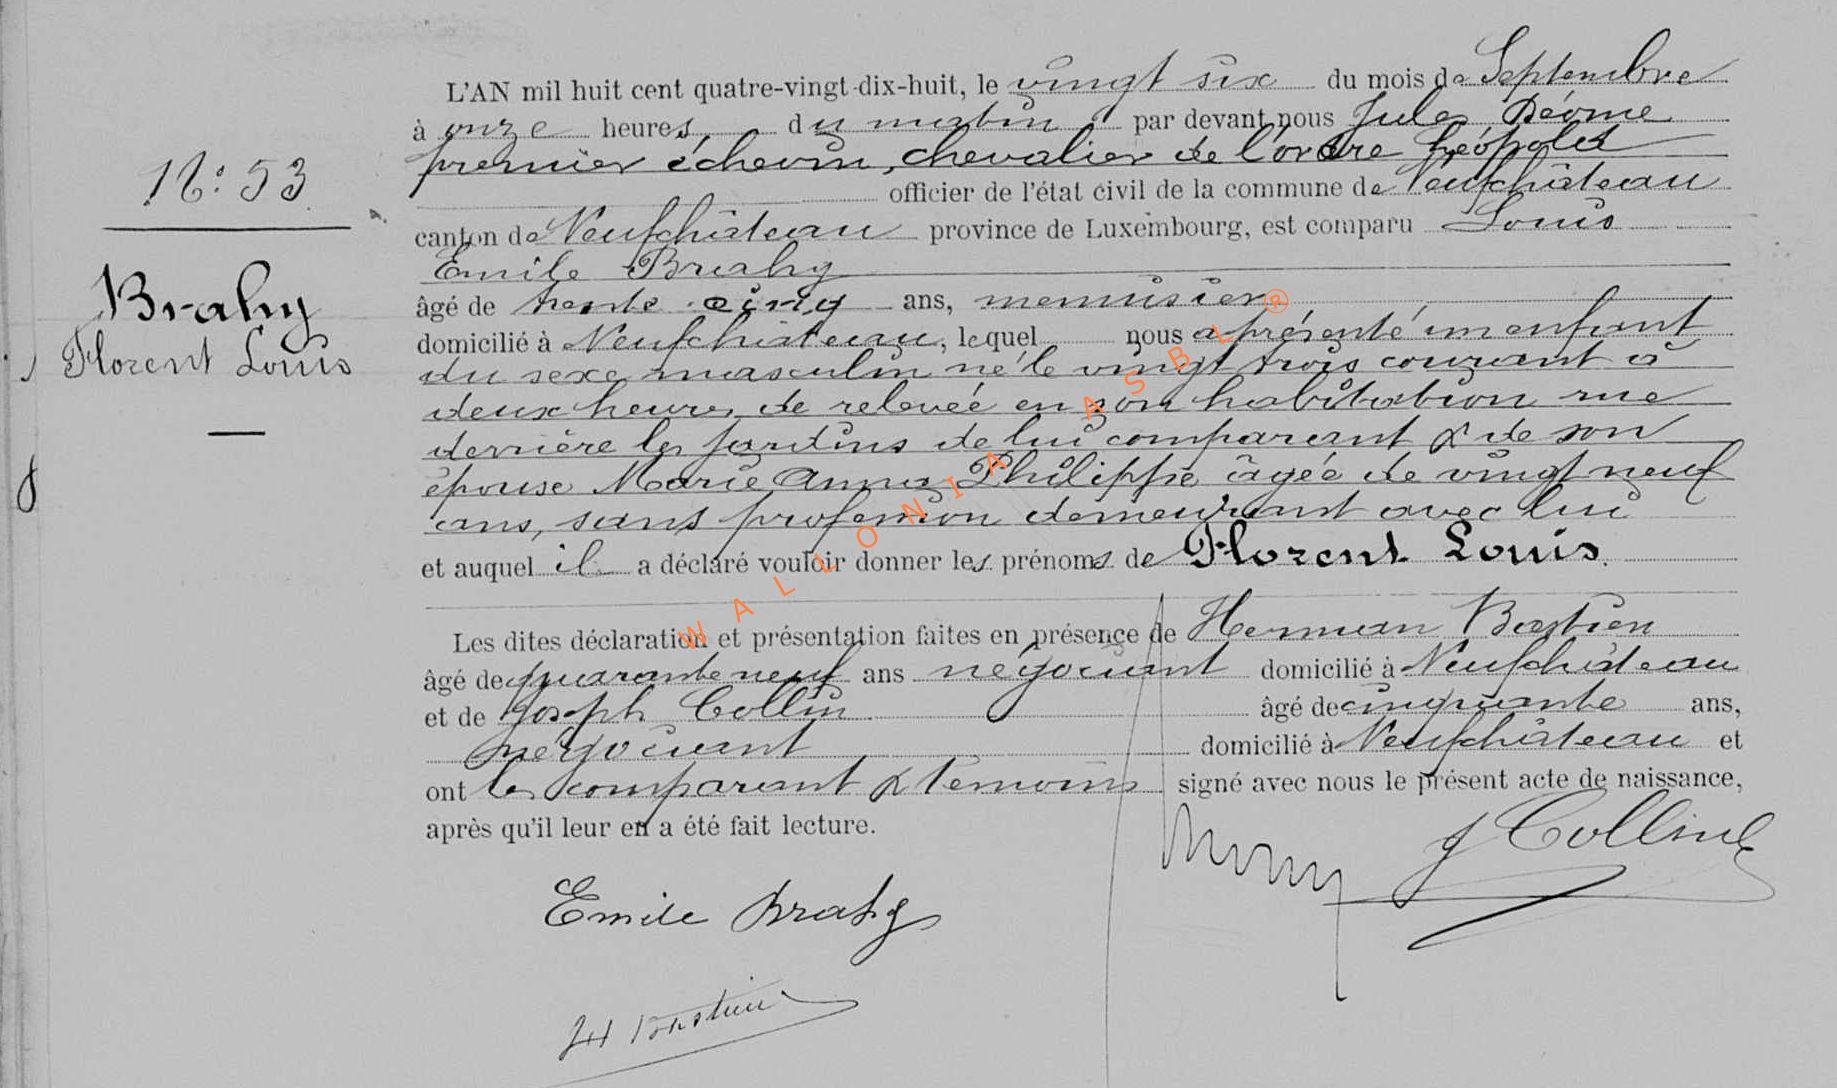 L'AN mil huit cent quatre-vingt-dix-huit, le vingt six du mois de Septembre
à onze heures du matin par devant nous Jules Déome
premier échevin, chevalier de l'ordre Léopold
officier de l'état civil de la commune de Neufchâteau
canton de Neufchâteau province de Luxembourg, est comparu Louis
Emile Brahy
âgé de trente cinq ans, menuisier
domicilié à Neufchateau, lequel nous a présenté un enfant
du sexe masculin né le vingt trois courant à
deux heures de relevée en son habitation rue
derrière les jardins de lui comparant & de son
épouse Marie Anna Philippe âgée de vingt neuf
ans, sans profession demeurant avec lui
et auquel il a déclaré vouloir donner les prénoms de Florent Louis.
Les dites déclaration et présentation faites en présence de Herman Bastien
âgé de quarante neuf ans négociant domicilié à Neufchâteau
et de Joseph Collin âgé de cinquante ans,
négociant domicilié à Neufchâteau et
ont les comparant & témoins signé avec nous le présent acte de naissance,
après qu'il leur en a été fait lecture.
J Collin
Emile Brahy
H Bastien
N: 53
Brahy
Florent Louis
WALLONIA ASBL ®